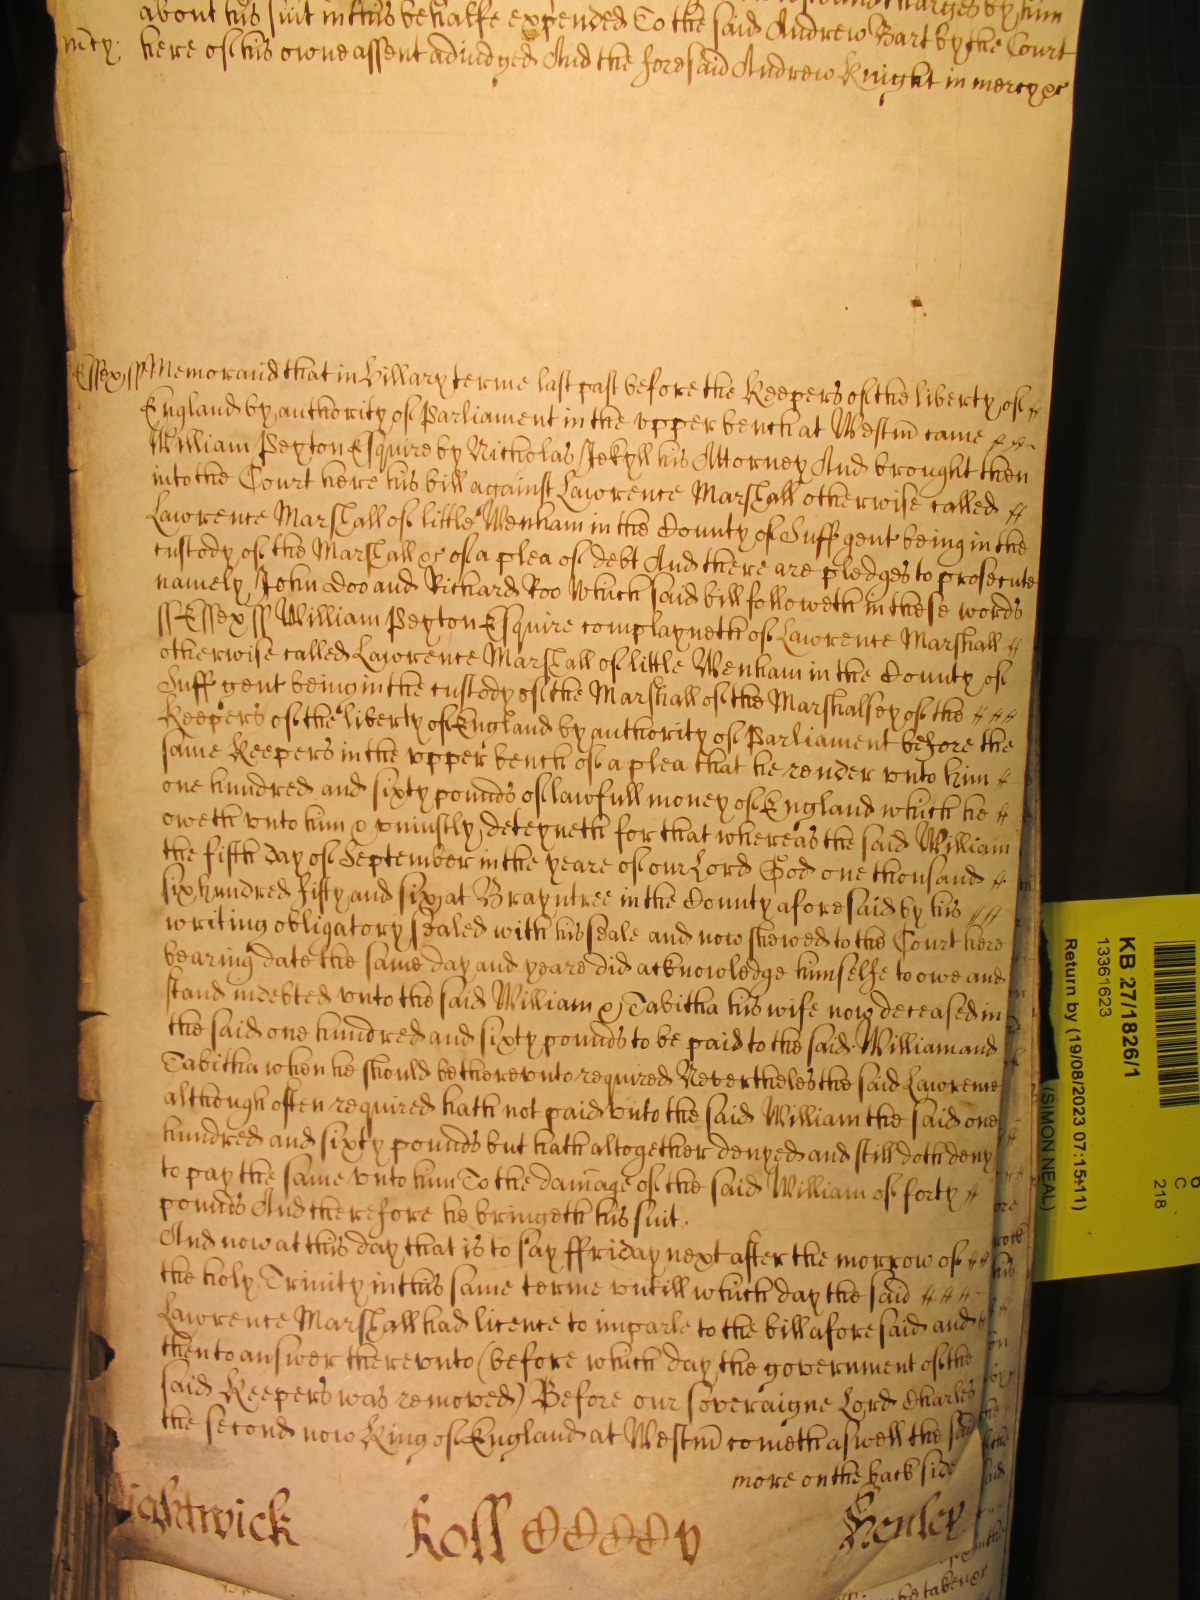 about his suit in this behalfe expended To the said Andrew Bart by the Court
mcy: here of his owne assent adiudged And the foresaid Andrew Knight in mercy &c
Essex ss Memorand that in Hillary terme last past before the Keepers of the liberty of
England by authority of Parliament in the vpper bench at Westm came
William Peyton Esquire by Nicholas Jekyll his Attorney And brought then
into the Court here his bill against Lawrence Marshall otherwise called
Lawrence Marshall of little Wenham in the County of Suff gent being in the
custody of the Marshall &c of a plea of debt And there are pledges to prosecute
namely John Doo and Richard Roo Which said bill followeth in these words
ss Essex ss William Peyton Esquire complayneth of Lawrence Marshall
otherwise called Lawrence Marshall of little Wenham in the County of
Suff gent being in the custody of the Marshall of the Marshalsey of the
Keepers of the liberty of England by authority of Parliament before the
same Keepers in the vpper bench of a plea that he render vnto him
one hundred and sixty pounds of lawfull money of England which he
oweth vnto him & vniustly deteyneth for that whereas the said William
the fifth day of September in the yeare of our Lord God one thousand
six hundred fifty and six at Brayntree in the County aforesaid by his
writing obligatory sealed with his seale and now shewed to the Court here
bearing date the same day and yeare did acknowledge himselfe to owe and
stand indebted vnto the said William & Tabitha his wife now deceased in
the said one hundred and sixty pounds to be paid to the said William and
Tabitha when he should be therevnto required Neverthelesthe said Lawrence
although often required hath not paid vnto the said William the said one
hundred and sixty pounds but hath altogether denyed and still doth deny
to pay the same vnto him To the damage of the said William of forty
pounds And therefore he bringeth his suit.
And now at this day that is to say ffriday next after the morrow of
the holy Trinity in this same terme vntill which day the said
Lawrence Marshall had licence to imparle to the bill aforesaid and
then to answer therevnto (before which day the government of the
said Keepers was removed) Before our soveraigne Lord Charles
the second now King of England at Westm cometh aswell the said
more on the back side
Roll
Henley
KB 27/1826/1
13361623
Return by (19/08/2023 07:15:11)
(SIMON NEAL)
C
218